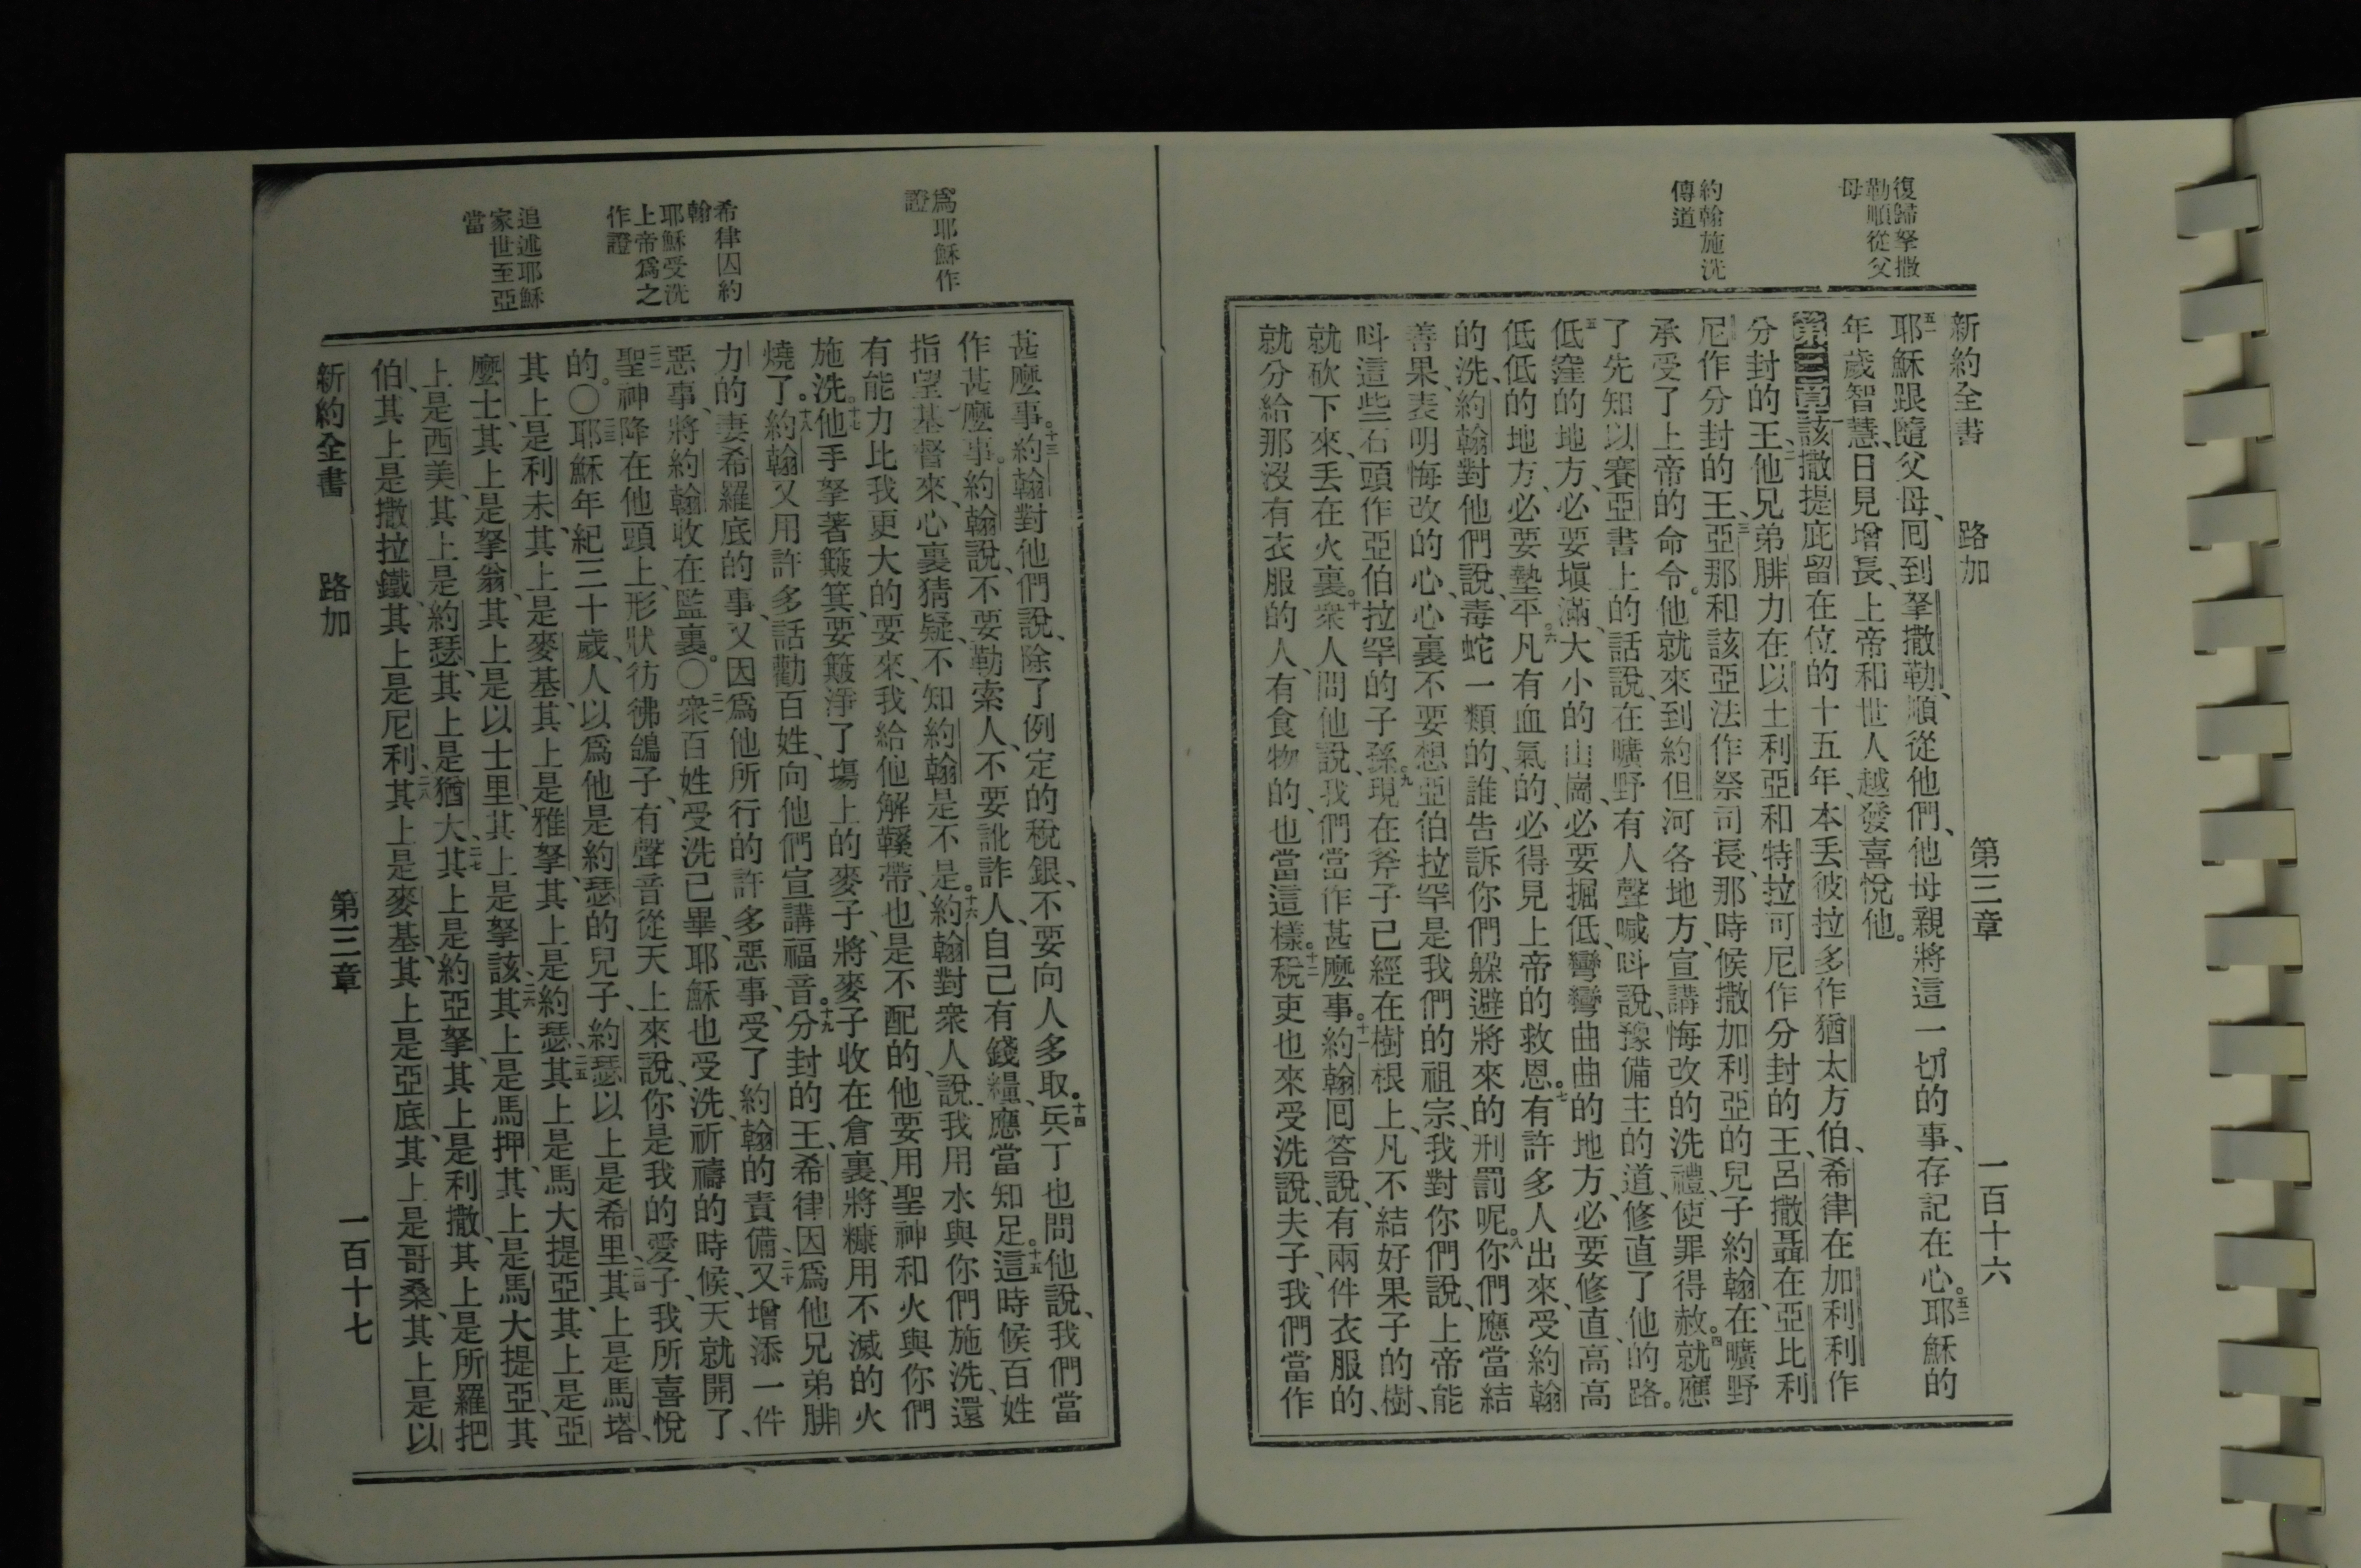 復歸拏撒
勒順從父
母
約翰施洗
傳道
新約全書 路加 第三章 一百十六
五一耶穌跟隨父母、囘到拏撒勒、順從他們、他母親將這一切的事、存記在心。五二耶穌的
年歲智慧、日見增長、上帝和世人越發喜悅他。
第三章一該撒提庇留在位的十五年、本丟彼拉多作猶太方伯、希律在加利利作
分封的王、他兄弟腓力在以土利亞和特拉可尼作分封的王、呂撒聶在亞比利
尼作分封的王、亞那和該亞法作祭司長、那時候撒加利亞的兒子約翰、在曠野
承受了上帝的命令。他就來到約但河各地方、宣講悔改的洗禮、使罪得赦。四就應
了先知以賽亞書上的話說、在曠野有人聲喊呌說、豫備主的道、修直了他的路。
五低窪的地方、必要塡滿、大小的山崗、必要掘低、彎彎曲曲的地方、必要修直、高高
低低的地方、必要墊平。六凡有血氣的、必得見上帝的救恩。七有許多人出來、受約翰
的洗、約翰對他們說、毒蛇一類的、誰告訴你們躲避將來的刑罰呢。八你們應當結
善果、表明悔改的心、心裏不要想亞伯拉罕是我們的祖宗、我對你們說、上帝能
呌這些石頭作亞伯拉罕的子孫。九現在斧子已經在樹根上、凡不結好果子的樹、
就砍下來、丟在火裏。十衆人問他說、我們當作甚麼事。十一約翰囘答說、有兩件衣服的、
就分給那沒有衣服的人、有食物的、也當這樣。十二稅吏也來受洗說、夫子、我們當作
爲耶穌作
證
希律囚約
翰
耶穌受洗
上帝爲之
作證
追述耶穌
家世至亞
當
甚麼事。十三約翰對他們說、除了例定的稅銀、不要向人多取。十四兵丁也問他說、我們當
作甚麼事。約翰說、不要勒索人、不要訛詐人、自己有錢糧、應當知足。十五這時候百姓
指望基督來、心裏猜疑、不知約翰是不是。十六約翰對衆人說、我用水與你們施洗、還
有能力比我更大的要來、我給他解鞵帶、也是不配的、他要用聖神和火與你們
施洗。十七他手拏著簸箕、要簸淨了塲上的麥子、將麥子收在倉裏、將糠用不滅的火
燒了。十八約翰又用許多話勸百姓、向他們宣講福音。十九分封的王、希律因爲他兄弟腓
力的妻希羅底的事、又因爲他所行的許多惡事、受了約翰的責備、二十又增添一件
惡事、將約翰收在監裏。〇二一衆百姓受洗已畢、耶穌也受洗、祈禱的時候、天就開了、
二二聖神降在他頭上、形狀彷彿鴿子、有聲音從天上來說、你是我的愛子、我所喜悅
的。〇二三耶穌年紀三十歲、人以爲他是約瑟的兒子、約瑟以上是希里、二四其上是馬塔、
其上是利未、其上是麥基、其上是雅拏、其上是約瑟、二五其上是馬大提亞、其上是亞
麼士、其上是拏翁、其上是以士里、其上是拏該、二六其上是馬押、其上是馬大提亞、其
上是西美、其上是約瑟、其上是猶大、二七其上是約亞拏、其上是利撒、其上是所羅把
伯、其上是撒拉鐵、其上是尼利、二八其上是麥基、其上是亞底、其上是哥桑、其上是以
新約全書 路加 第三章 一百十七